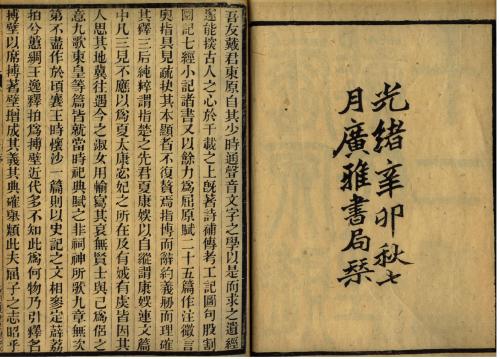 光緒辛卯秋七
月廣雅書局栞
吾友戴君東原自其少時通聲音文字之學以是而求之遺經
遂能探古人之心於千載之上旣著詩補傳考工記圖句股割
圜記七經小記諸書又以餘力爲屈原賦二十五篇作注微言
奧指具見疏抉其本顯者不復贅焉指博而辭約義剏而理確
其釋三后純粹謂指楚之先君夏康娛以自縱謂康娛連文篇
中凡三見不應以爲夏太康宓妃之所在及有娀有虞皆因其
人思其地冀往遇今之淑女用輸寫其哀無賢士與己爲侶之
意九歌東皇等篇皆就當時祀典賦之非祠神所歌九章無次
第不盡作於頃襄王時懷沙一篇則以史記之文相參定薜荔
拍兮蕙綢王逸釋拍爲搏壁近代多不知此爲何物乃引釋名
搏壁以席搏著壁增成其義其典確舉類此夫屈子之志昭乎